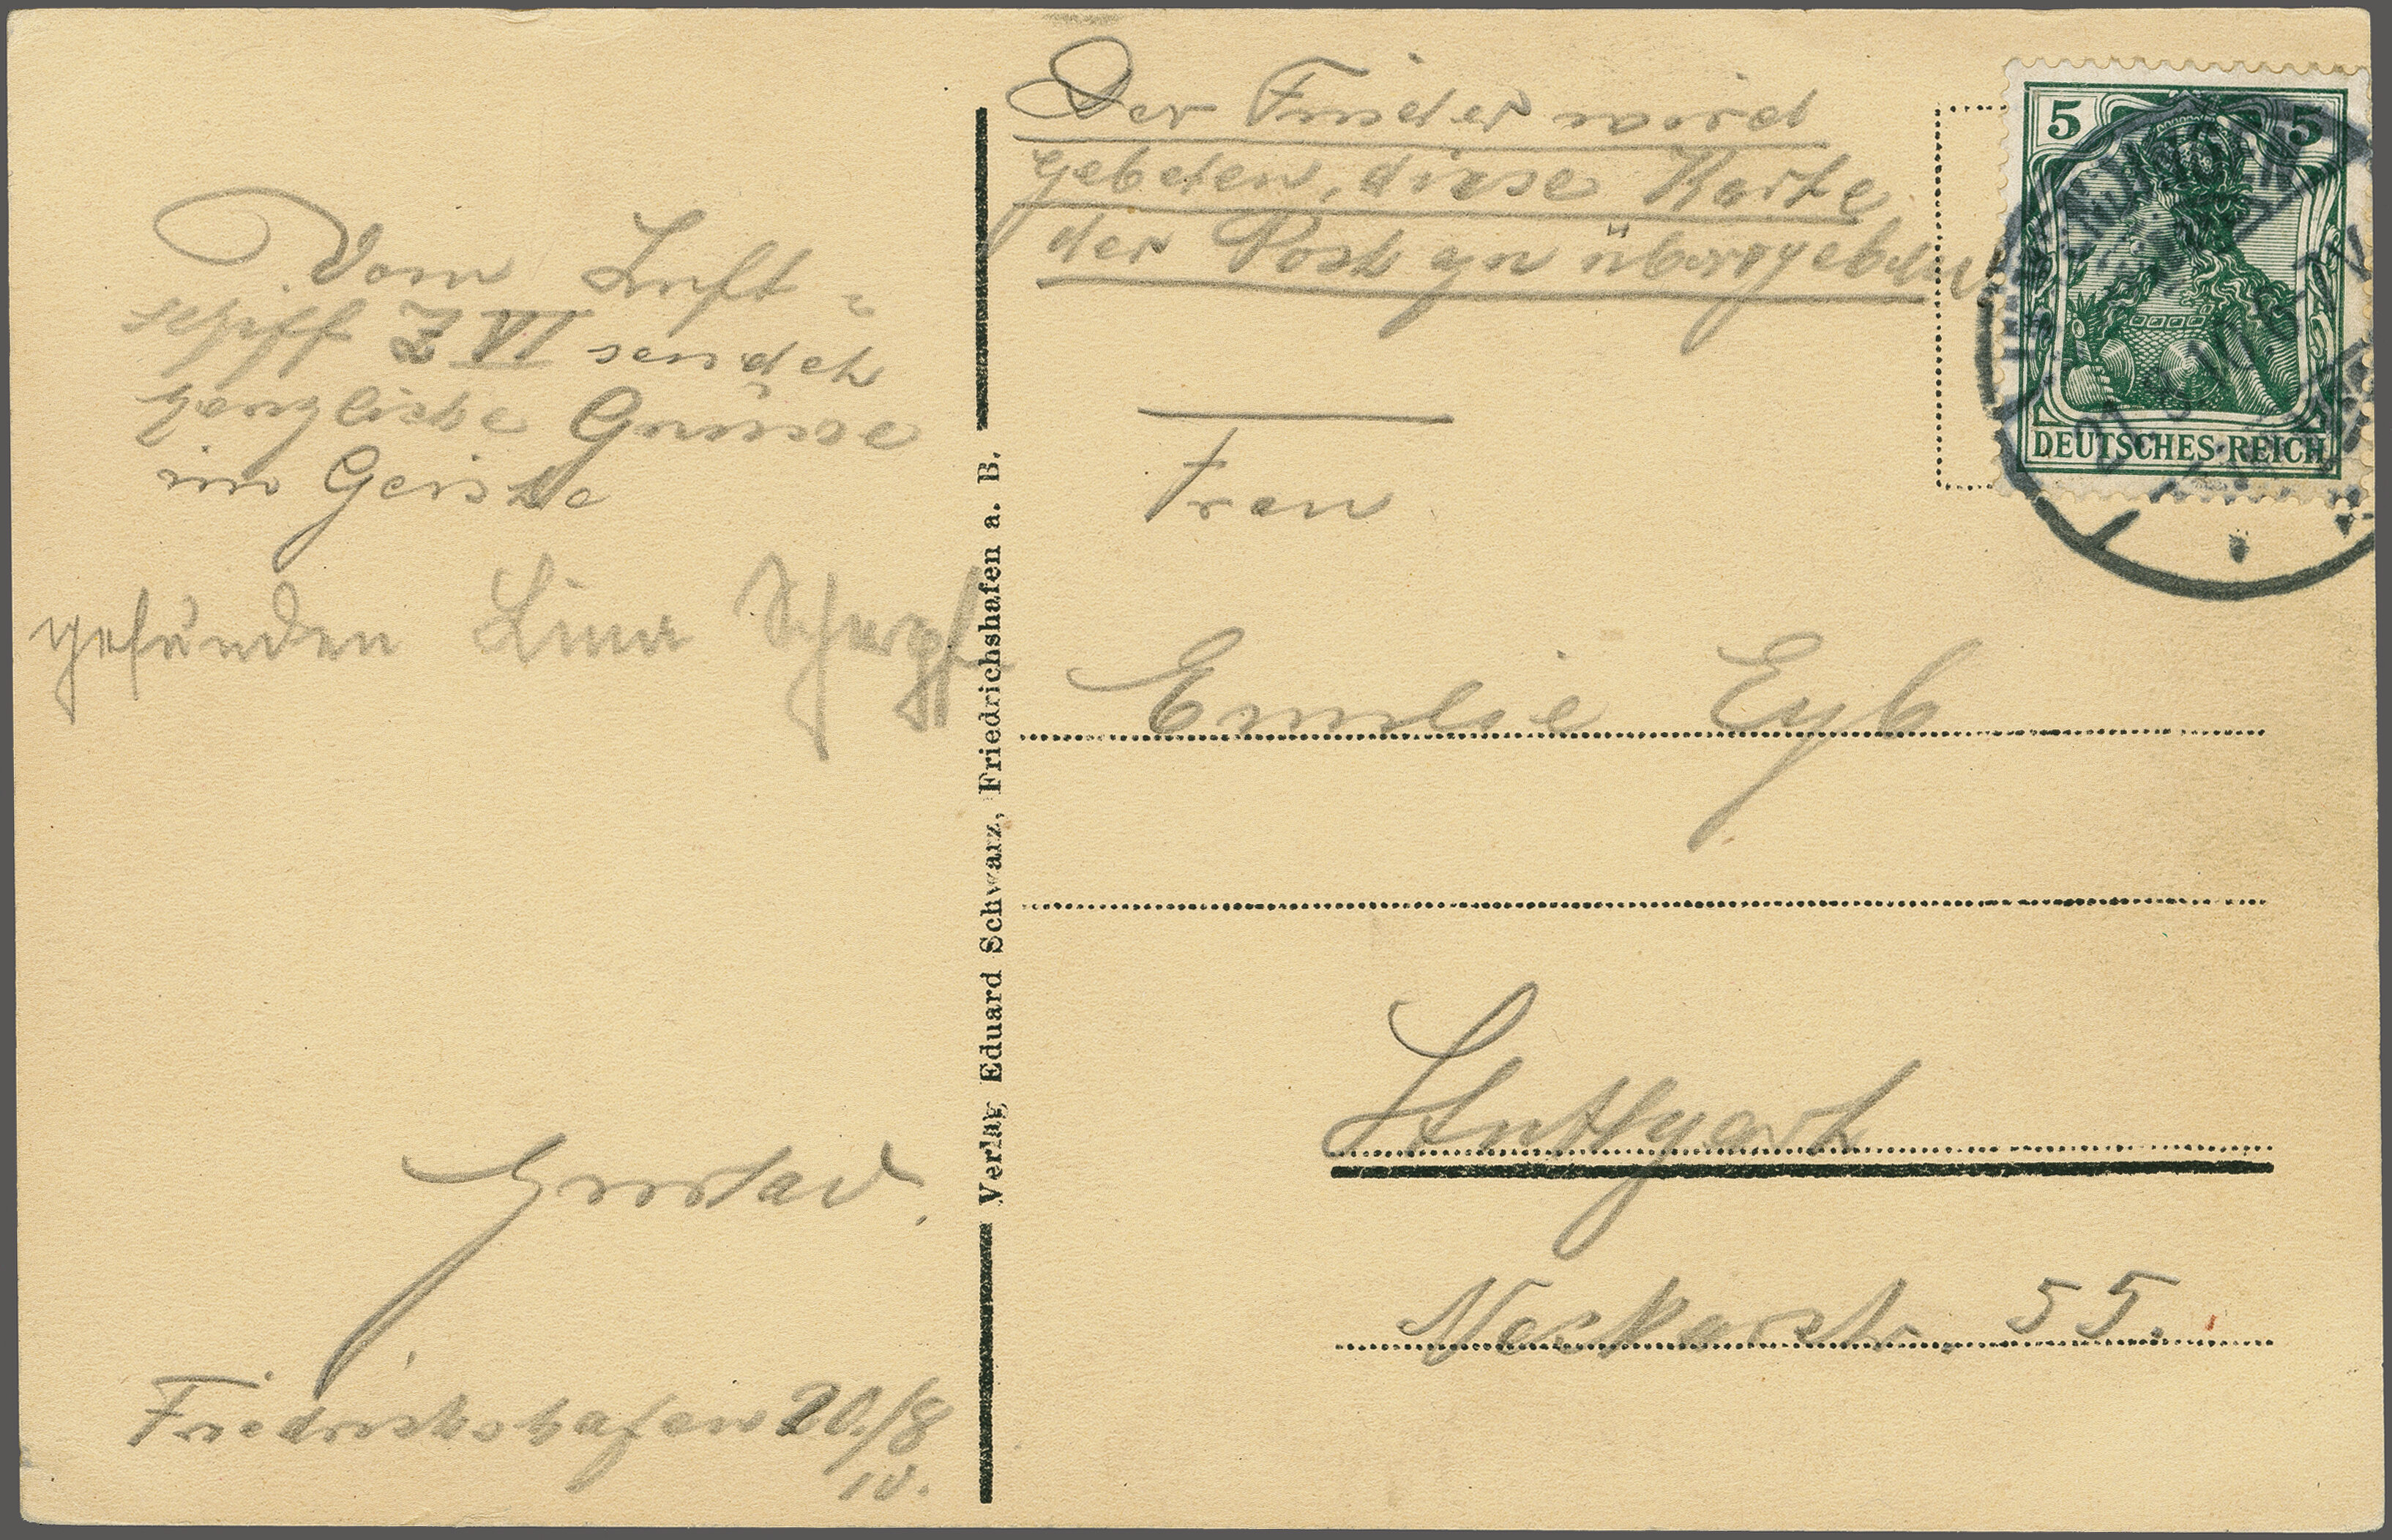 Vom Luft-
schiff Z VI sendet
herzliche Grüsse
im Geiste
gefunden Lina
Gustav.
Friedrichshafen 20./8
10.
Verlag Eduard Schwarz, Friedrichshafen a. B.
Der Finder wird
gebeten, diese Karte
der Post zu übergeben
Frau
Emilie Eyb
Stuttgart
Neckarstr. 55.
5 5
DEUTSCHES REICH